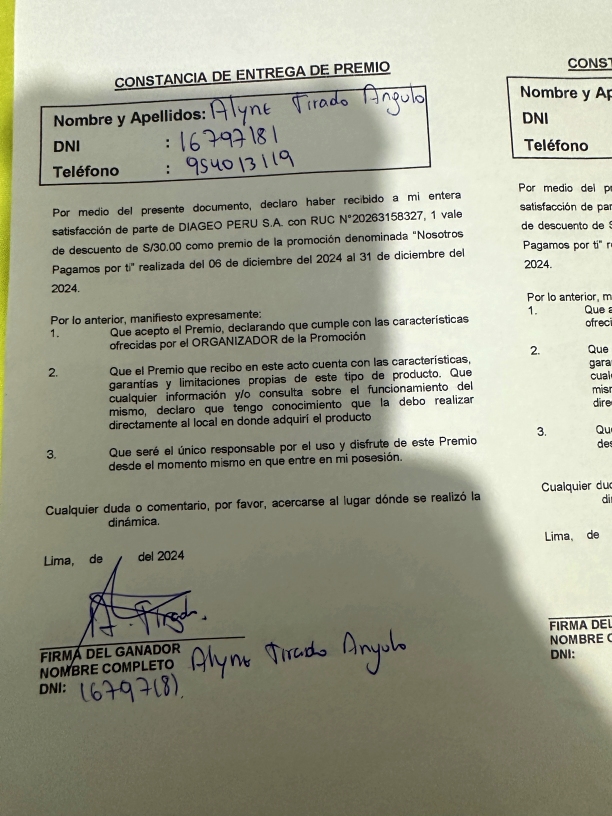 CONSTANCIA DE ENTREGA DE PREMIO
Nombre y Apellidos: Alyne Tirado Angulo
DNI : 16797181
Teléfono : 954013119
Por medio del presente documento, declaro haber recibido a mi entera
satisfacción de parte de DIAGEO PERU S.A. con RUC N°20263158327, 1 vale
de descuento de S/30.00 como premio de la promoción denominada "Nosotros
Pagamos por ti" realizada del 06 de diciembre del 2024 al 31 de diciembre del
2024.
Por lo anterior, manifiesto expresamente:
1. Que acepto el Premio, declarando que cumple con las características
ofrecidas por el ORGANIZADOR de la Promoción
2. Que el Premio que recibo en este acto cuenta con las características,
garantías y limitaciones propias de este tipo de producto. Que
cualquier información y/o consulta sobre el funcionamiento del
mismo, declaro que tengo conocimiento que la debo realizar
directamente al local en donde adquirí el producto
3. Que seré el único responsable por el uso y disfrute de este Premio
desde el momento mismo en que entre en mi posesión.
Cualquier duda o comentario, por favor, acercarse al lugar dónde se realizó la
dinámica.
Lima, de del 2024
A. Tirado.
FIRMA DEL GANADOR
NOMBRE COMPLETO Alyne Tirado Angulo
DNI: 16797181.
CONST
Nombre y Ap
DNI
Teléfono
Por medio del pr
satisfacción de par
de descuento de S
Pagamos por ti" re
2024.
Por lo anterior, m
1. Que a
ofreci
2. Que
gara
cual
mism
dire
3. Qu
des
Cualquier duc
di
Lima, de
FIRMA DEL
NOMBRE C
DNI: